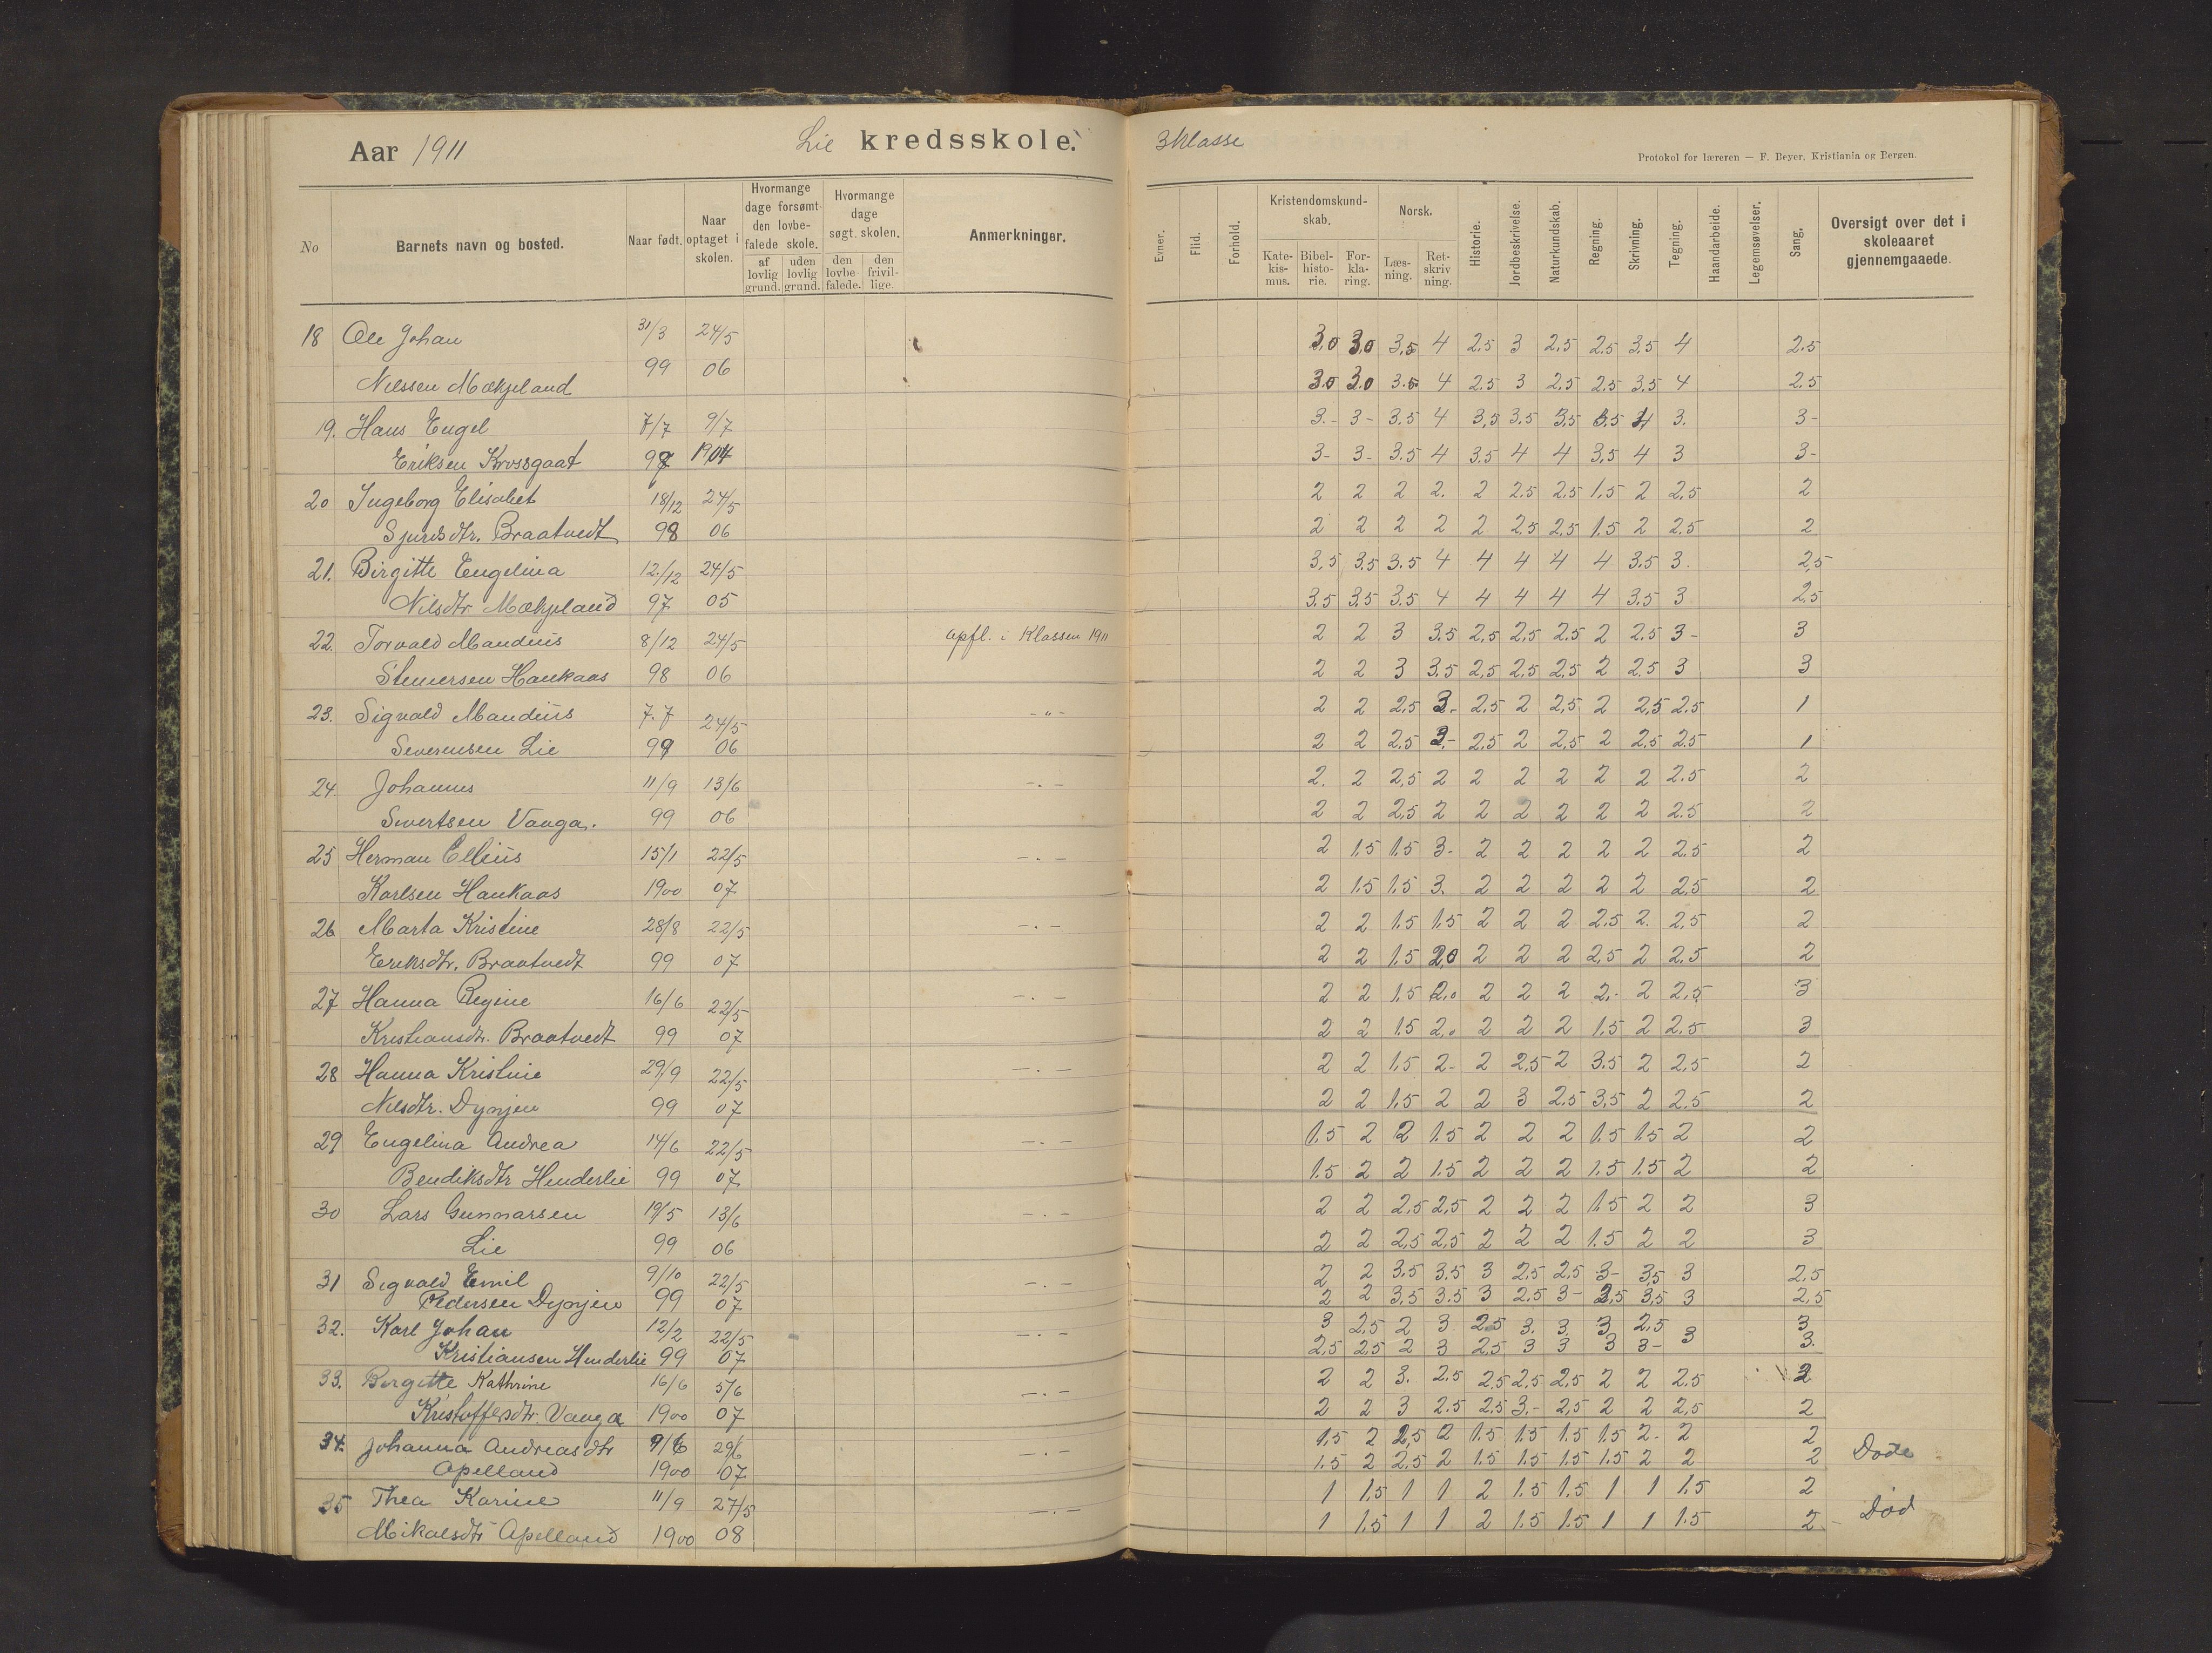 Aar 1911
Lie kredsskole.
3 klasse
Protokol for læreren — F. Beyer, Kristiania og Bergen.
No
Barnets navn og bosted.
Naar født.
Naar optaget i skolen.
Hvormange dage forsømt den lovbefalede skole.
af lovlig grund.
uden lovlig grund.
Hvormange dage søgt skolen.
den lovbefalede.
den frivillige.
Anmerkninger.
Evner.
Flid.
Forhold.
Kristendomskundskab.
Katekismus.
Bibelhistorie.
Forklaring.
Norsk.
Læsning.
Retskrivning.
Historie.
Jordbeskrivelse.
Naturkundskab.
Regning.
Skrivning.
Tegning.
Haandarbeide.
Legemsøvelser.
Sang.
Oversigt over det i skoleaaret gjennemgaaede.
18 Ole Johan 31/3 24/5 3,0 3,0 3,5 4 2,5 3 2,5 2,5 3,5 4 2,5
Nilssen Mækjeland 99 06 3,0 3,0 3,5 4 2,5 3 2,5 2,5 3,5 4 2,5
19. Hans Engel 7/7 9/7 3.- 3- 3.5 4 3,5 3.5 3,5 3.5 4 3. 3-
Eriksen Krossgaat 97 1904 3- 3- 3.5 4 3.5 4 4 3,5 4 3 3-
20 Ingeborg Elisabet 18/12 24/5 2 2 2 2. 2 2.5 2.5 1.5 2 2,5 2
Sjursdtr. Braatvedt 98 06 2 2 2 2 2 2.5 2,5 1.5 2 2.5 2
21. Birgitte Engelina 12/12 24/5 3,5 3,5 3.5 4 4 4 4 4 3.5 3. 2,5
Nilsdtr Mækjeland 97 05 3.5 3,5 3.5 4 4 4 4 4 3.5 3 2,5
22. Torvald Mandius 8/12 24/5 opfl. i Klassen 1911 2 2 3 3.5 2,5 2,5 2.5 2 2.5 3- 3
Stenersen Haukaas 98 06 2 2 3 3.5 2,5 2,5 2,5 2 2.5 3 3
23. Sigvald Mandius 7.7 24/5 -"- 2 2 2,5 3- 2.5 2 2,5 2 2,5 2.5 1
Severinsen Lie 98 06 2 2 2.5 3.- 2.5 2 2,5 2 2,5 2.5 1
24. Johannes 11/9 13/6 -.- 2. 2 2,5 2 2 2 2 2 2 2.5 2
Sivertsen Vanga. 99 06 2 2 2,5 2 2 2 2 2 2 2.5 2
25 Herman Ellius 15/1 22/5 -.- 2 1.5 1.5 3- 2 2 2 2 2 2.5 2
Karlsen Haukaas 1900 07 2 1.5 1.5 3. 2 2 2 2 2 2,5 2
26 Marta Kristine 28/8 22/5 -.- 2 2 1.5 1.5 2 2 2 2.5 2. 2,5 2
Eriksdtr. Braatvedt 99 07 2 2 1.5 2,0 2 2 2 2,5 2 2.5 2
27 Hanna Regine 16/6 22/5 -.- 2 2 1.5 2.0 2 2 2 2.- 2 2,5 3
Kristiansdtr. Braatvedt 99 07 2 2 1.5 2.0 2 2 2 1.5 2 2.5 3
28 Hanna Kristine 29/9 22/5 -.- 2 2 1.5 2- 2 2,5 2 3.5 2 2,5 2
Nilsdtr. Dyvjen 99 07 2 2 1.5 2 2 3 2.5 3,5 2 2.5 2
29 Engelina Andrea 14/6 22/5 -.- 1.5 2 2 1.5 2 2 2 1.5 1.5 2 2
Bendiksdtr Henderlie 99 07 1.5 2 2 1.5 2 2 2 1.5 1.5 2 2
30 Lars Gunnarsen 19/5 13/6 -.- 2 2 2,5 2,5 2 2 2 1.5 2 2 3
Lie 99 06 2 2 2,5 2,5 2 2 2 1.5 2 2 3
31 Sigvald Emil 9/10 22/5 -.- 2 2 3,5 3.5 3 2.5 2,5 3- 3,5 3 2,5
Pedersen Dyvjen 99 07 2 2 3,5 3.5 3 2.5 3- 3,5 3,5 3 2,5
32. Karl Johan 12/2 22/5 -.- 3 2,5 2 3 2.5 3. 3. 3 2.5 3
Kristiansen Henderlie 99 07 2,5 2.5 2 3 2,5 3 3 3 3- 3 3.
33. Birgitte Kathrine 16/6 5/6 -.- 2 2 3. 2.5 2,5 2,5 2,5 2 2 2.5 2
Kristoffersdtr. Vanga 1900 07 2 2 3 2.5 2.5 3.- 2,5 2 2 2,5 2
34. Johanna Andreasdtr 9/6 29/6 -.- 1.5 2 2,5 2 1.5 1.5 1.5 1.5 2- 2 2
Apelland 1900 07 1.5 2 2.5 2 1.5 1.5 1.5 1.5 2 2 2 Døde
35 Thea Karine 11/9 27/5 -.- 1 1.5 1 1 2 1.5 1.5 1 1 1.5 2
Mikalsdtr Apelland 1900 08 1 1.5 1 1 2 1.5 1.5 1 1 1.5 2- Død